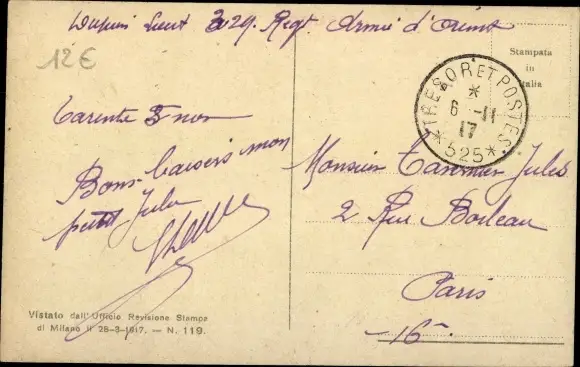 Dupuis Lieut 329 Regt Armée d'Orient
12€
Stampata
in
Italia
TRESOR ET POSTES
*
6 -11
17
* 525 *
Tarente 5 nov
Bons baisers mon
petit Jules
Monsieur Jules
2 Rue Boileau
Paris
16e
Vistato dall'Ufficio Revisione Stampa
di Milano il 28-3-1917. - N. 119.